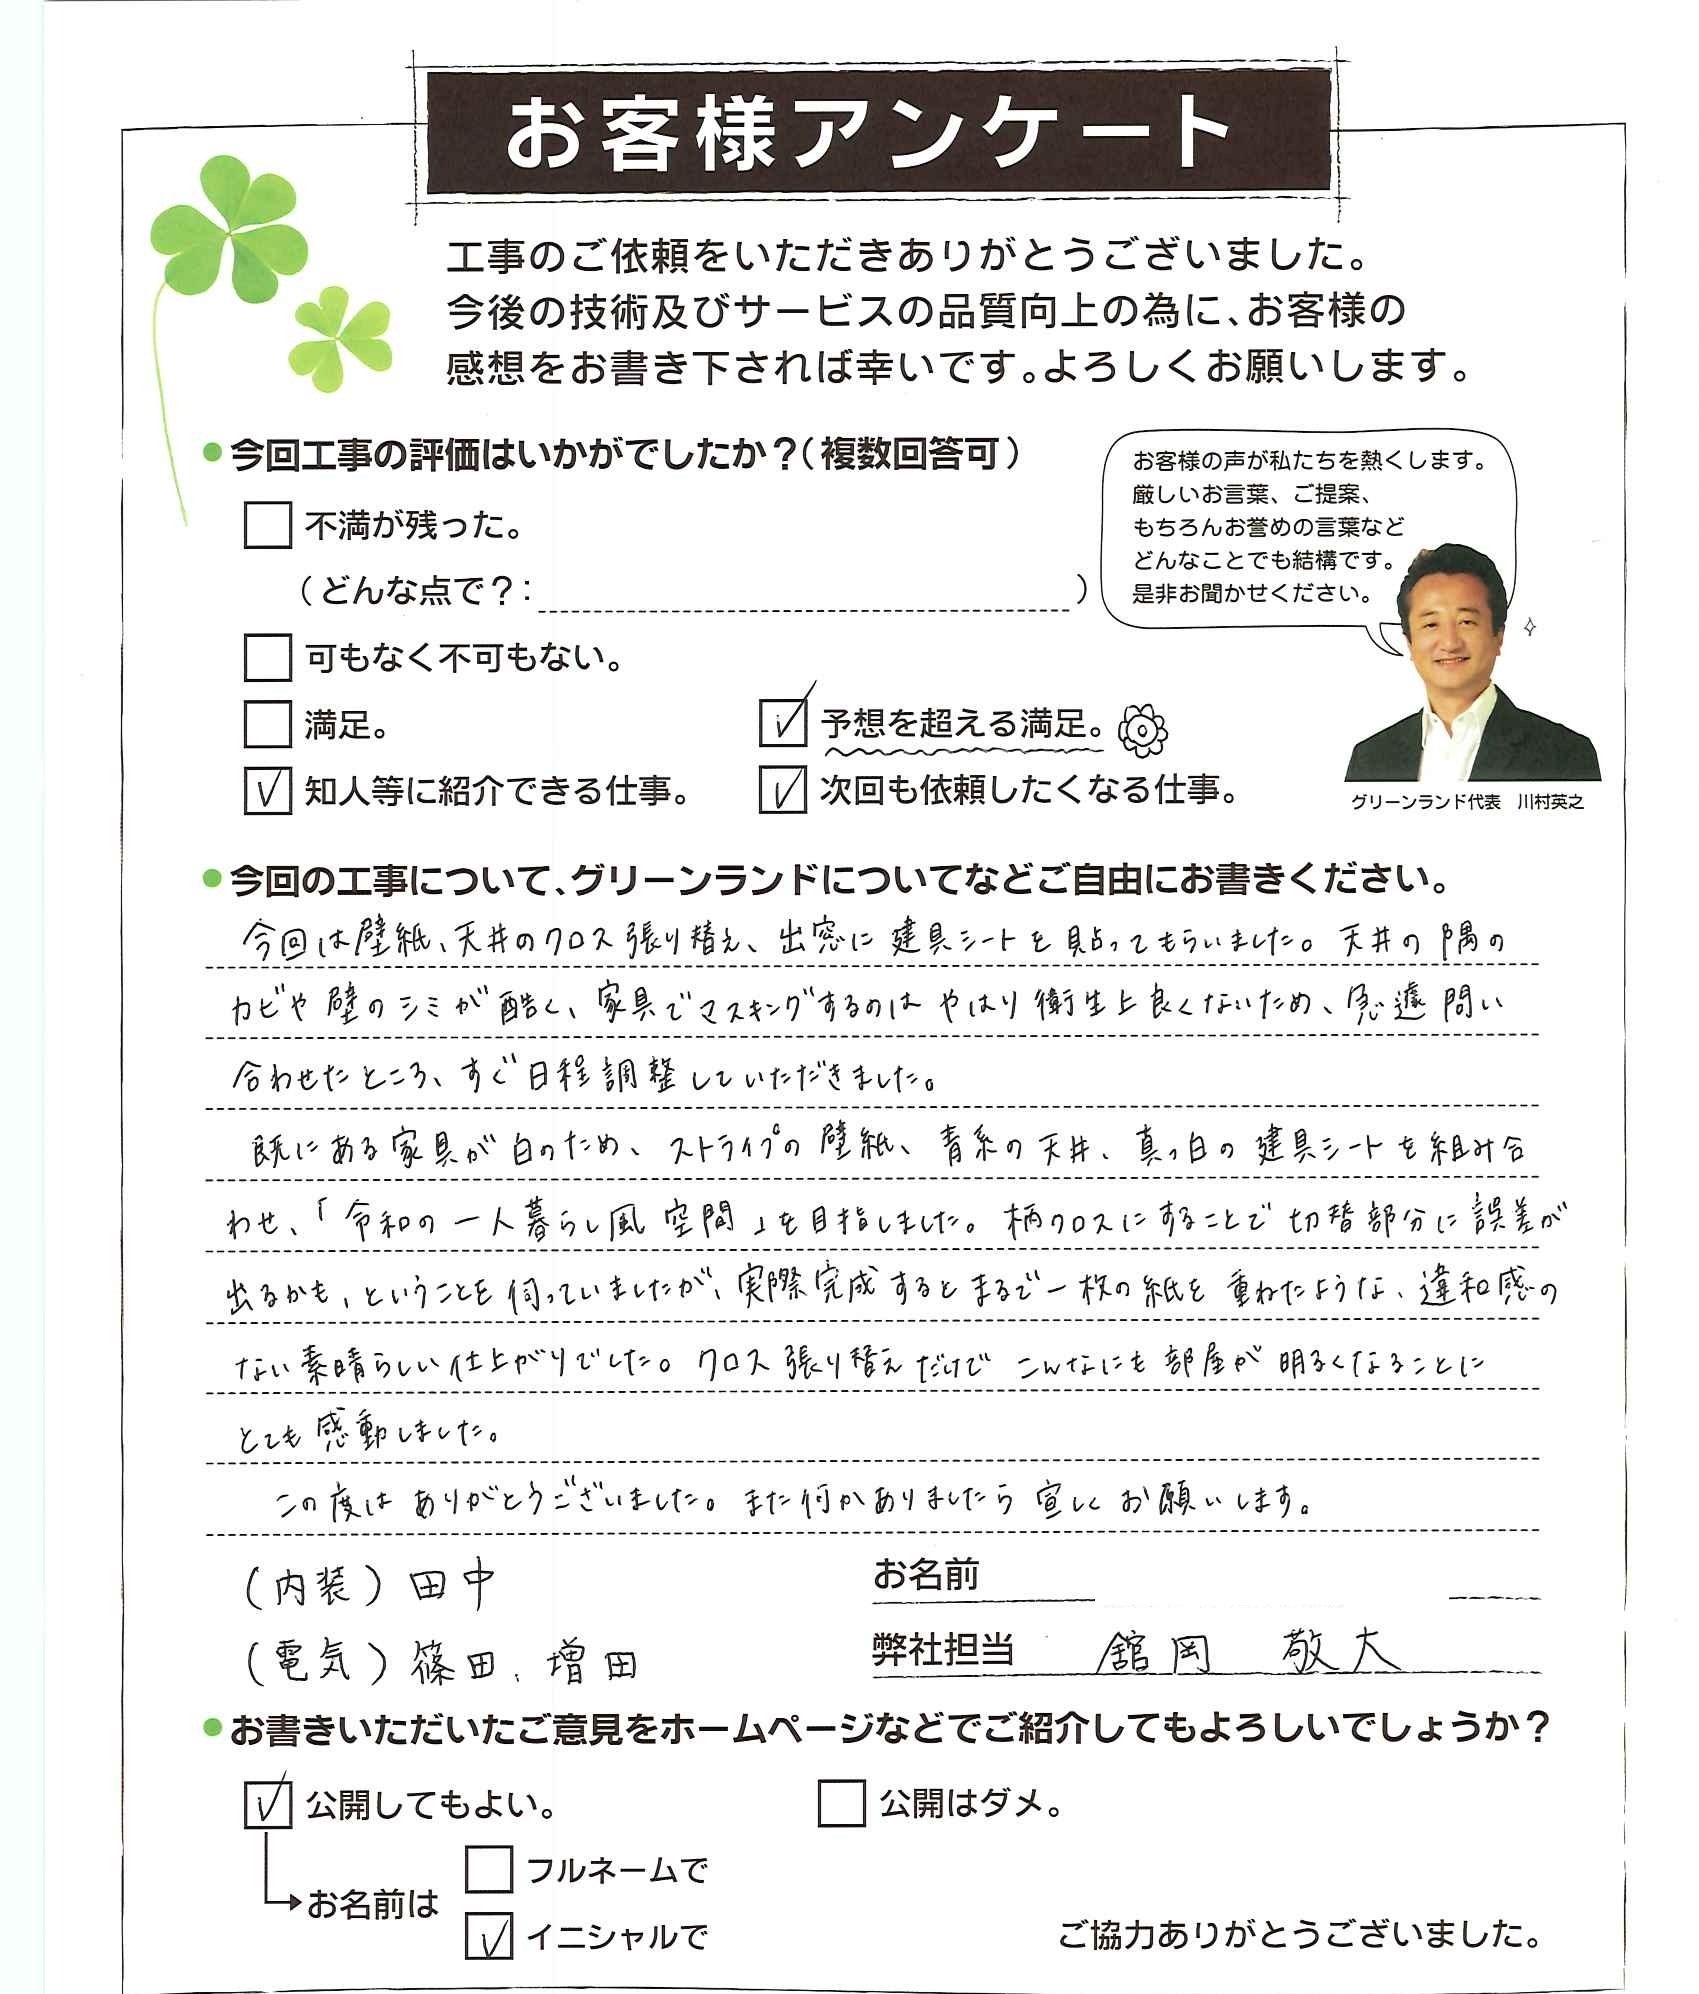 お客様アンケート
工事のご依頼をいただきありがとうございました。
今後の技術及びサービスの品質向上の為に、お客様の
感想をお書き下されば幸いです。よろしくお願いします。
今回工事の評価はいかがでしたか？（複数回答可）
お客様の声が私たちを熱くします。
厳しいお言葉、ご提案、
もちろんお誉めの言葉など
どんなことでも結構です。
是非お聞かせください。
不満が残った。
（どんな点で？：　　）
可もなく不可もない。
満足。
予想を超える満足。
知人等に紹介できる仕事。
次回も依頼したくなる仕事。
グリーンランド代表　川村英之
今回の工事について、グリーンランドについてなどご自由にお書きください。
今回は壁紙、天井のクロス張り替え、出窓に建具シートを貼ってもらいました。天井の隅の
カビや壁のシミが酷く、家具でマスキングするのはやはり衛生上良くないため、急遽問い
合わせたところ、すぐ日程調整していただきました。
既にある家具が白のため、ストライプの壁紙、青系の天井、真っ白の建具シートを組み合
わせ、「令和の一人暮らし風空間」を目指しました。柄クロスにすることで切替部分に誤差が
出るかも、ということを伺っていましたが、実際完成するとまるで一枚の紙を重ねたような、違和感の
ない素晴らしい仕上がりでした。クロス張り替えだけでこんなにも部屋が明るくなることに
とても感動しました。
この度はありがとうございました。また何かありましたら宜しくお願いします。
（内装）田中
お名前
（電気）篠田、増田
弊社担当　舘岡　敬大
お書きいただいたご意見をホームページなどでご紹介してもよろしいでしょうか？
公開してもよい。
公開はダメ。
フルネームで
お名前は
イニシャルで
ご協力ありがとうございました。